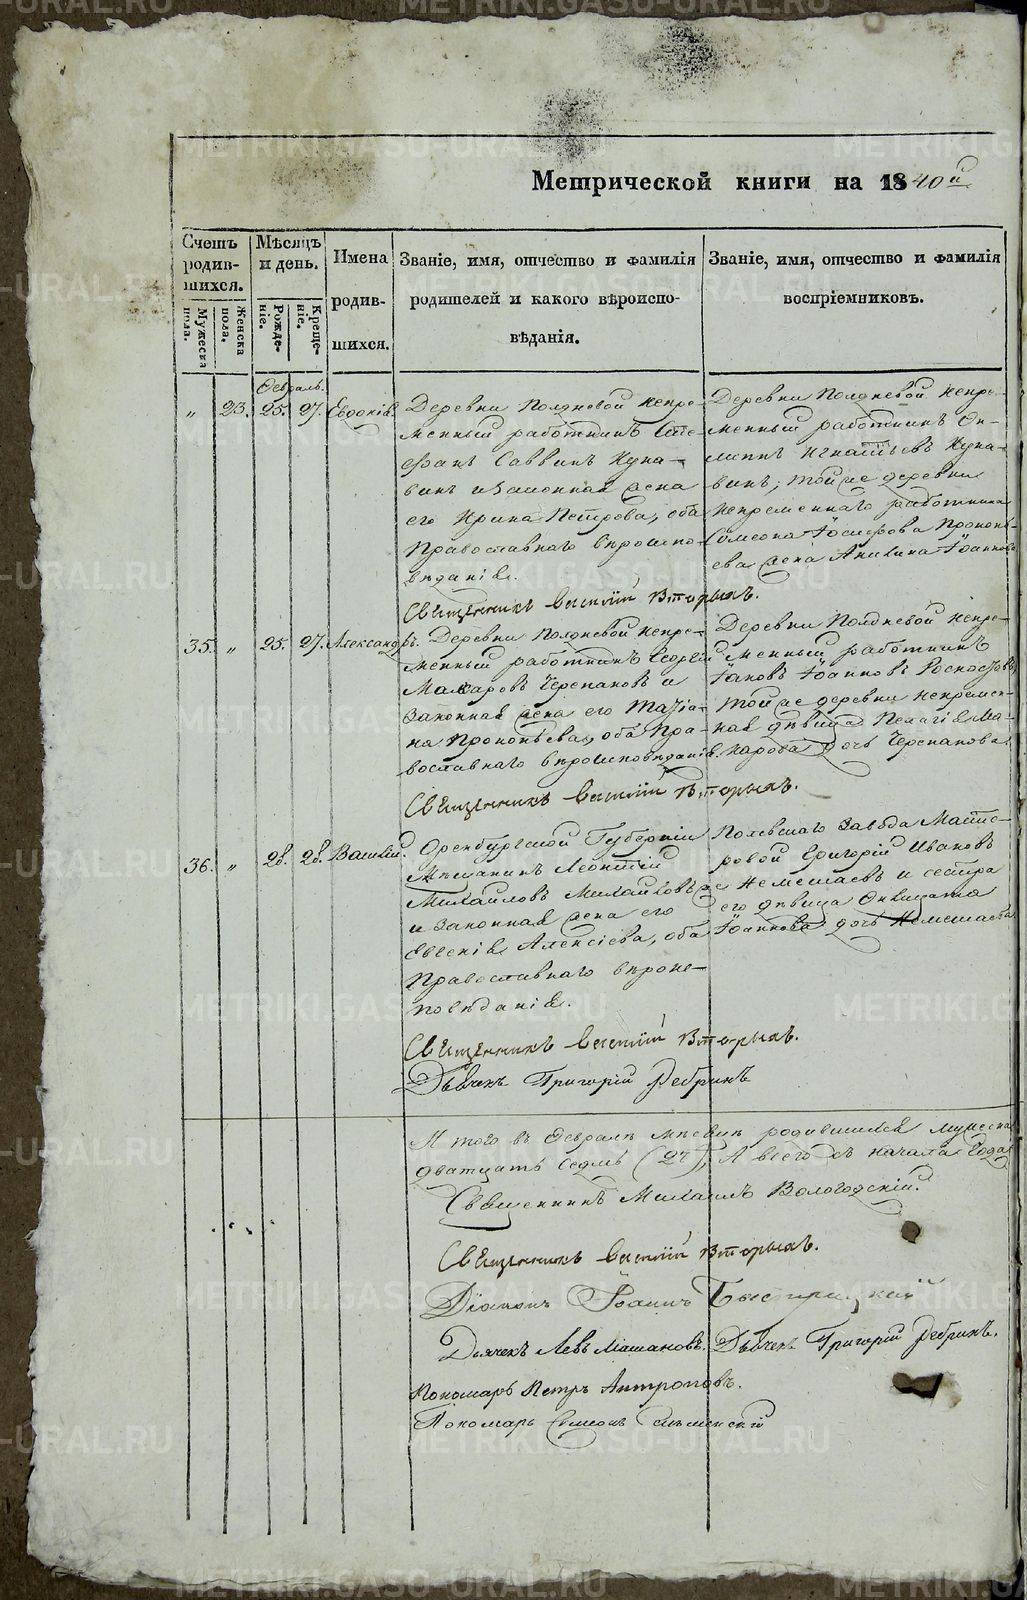 Метрической книги на 1840й
Счетъ родившихся.
Мужеска пола.
Женска пола.
Мѣсяцъ и день.
Рожденіе.
Крещеніе.
Имена родившихся.
Званіе, имя, отчество и фамилія родителей и какого вѣроисповѣданія.
Званіе, имя, отчество и фамилія воспріемниковъ.
Февраль.
„ 23. 25. 27. Евдокія
Деревни Полдневой непре-
менный работникъ Сте-
фанъ Саввинъ Куна-
винъ и законная жена
его Ирина Петрова, оба
Православнаго вѣроиспо-
вѣданія.
Священникъ Василій Вторыхъ.
Деревни Полдневой непре-
менный работникъ Фи-
липпъ Игнатьевъ Куна-
винъ; той же деревни
непременнаго работника
Симеона Іосифова Прокопь-
ева жена Акилина Іоаннова
35. „ 25. 27. Александръ.
Деревни Полдневой непре-
менный работникъ Георгій
Макаровъ Черепановъ и
законная жена его Татіа-
на Прокопьева, оба Пра-
вославнаго вѣроисповѣданія.
Священникъ Василій Вторыхъ.
Деревни Полдневой непре-
менный работникъ
Іаковъ Іоанновъ
той же деревни непремен-
ная дѣвица Пелагія Ма-
карова дочь Черепанова.
36. „ 26. 28. Василій.
Оренбургской Губерніи
Мѣщанинъ Леонтій
Михайловъ Михайловъ
и законная жена его
Евгенія Алексіева, оба
Православнаго вѣроис-
повѣданія.
Священникъ Василій Вторыхъ.
Дьячекъ Григорій Ребринъ
Полевскаго Завода Масте-
ровой Григорій Ивановъ
Немешаевъ и сестра
его дѣвица
Іоаннова дочь Немешаева
И того въ Февралѣ мѣсяцѣ родившихся мужеска
двадцать седмь (27), А всего съ начала года
Священникъ Михаилъ Вологодскій.
Священникъ Василій Вторыхъ.
Діаконъ Іоаннъ Быстрицкій
Дьячекъ Левъ Машановъ. Дьячекъ Григорій Ребринъ.
Пономарь Петръ Антроповъ.
Пономарь Симеонъ
METRIKI.GASO-URAL.RU